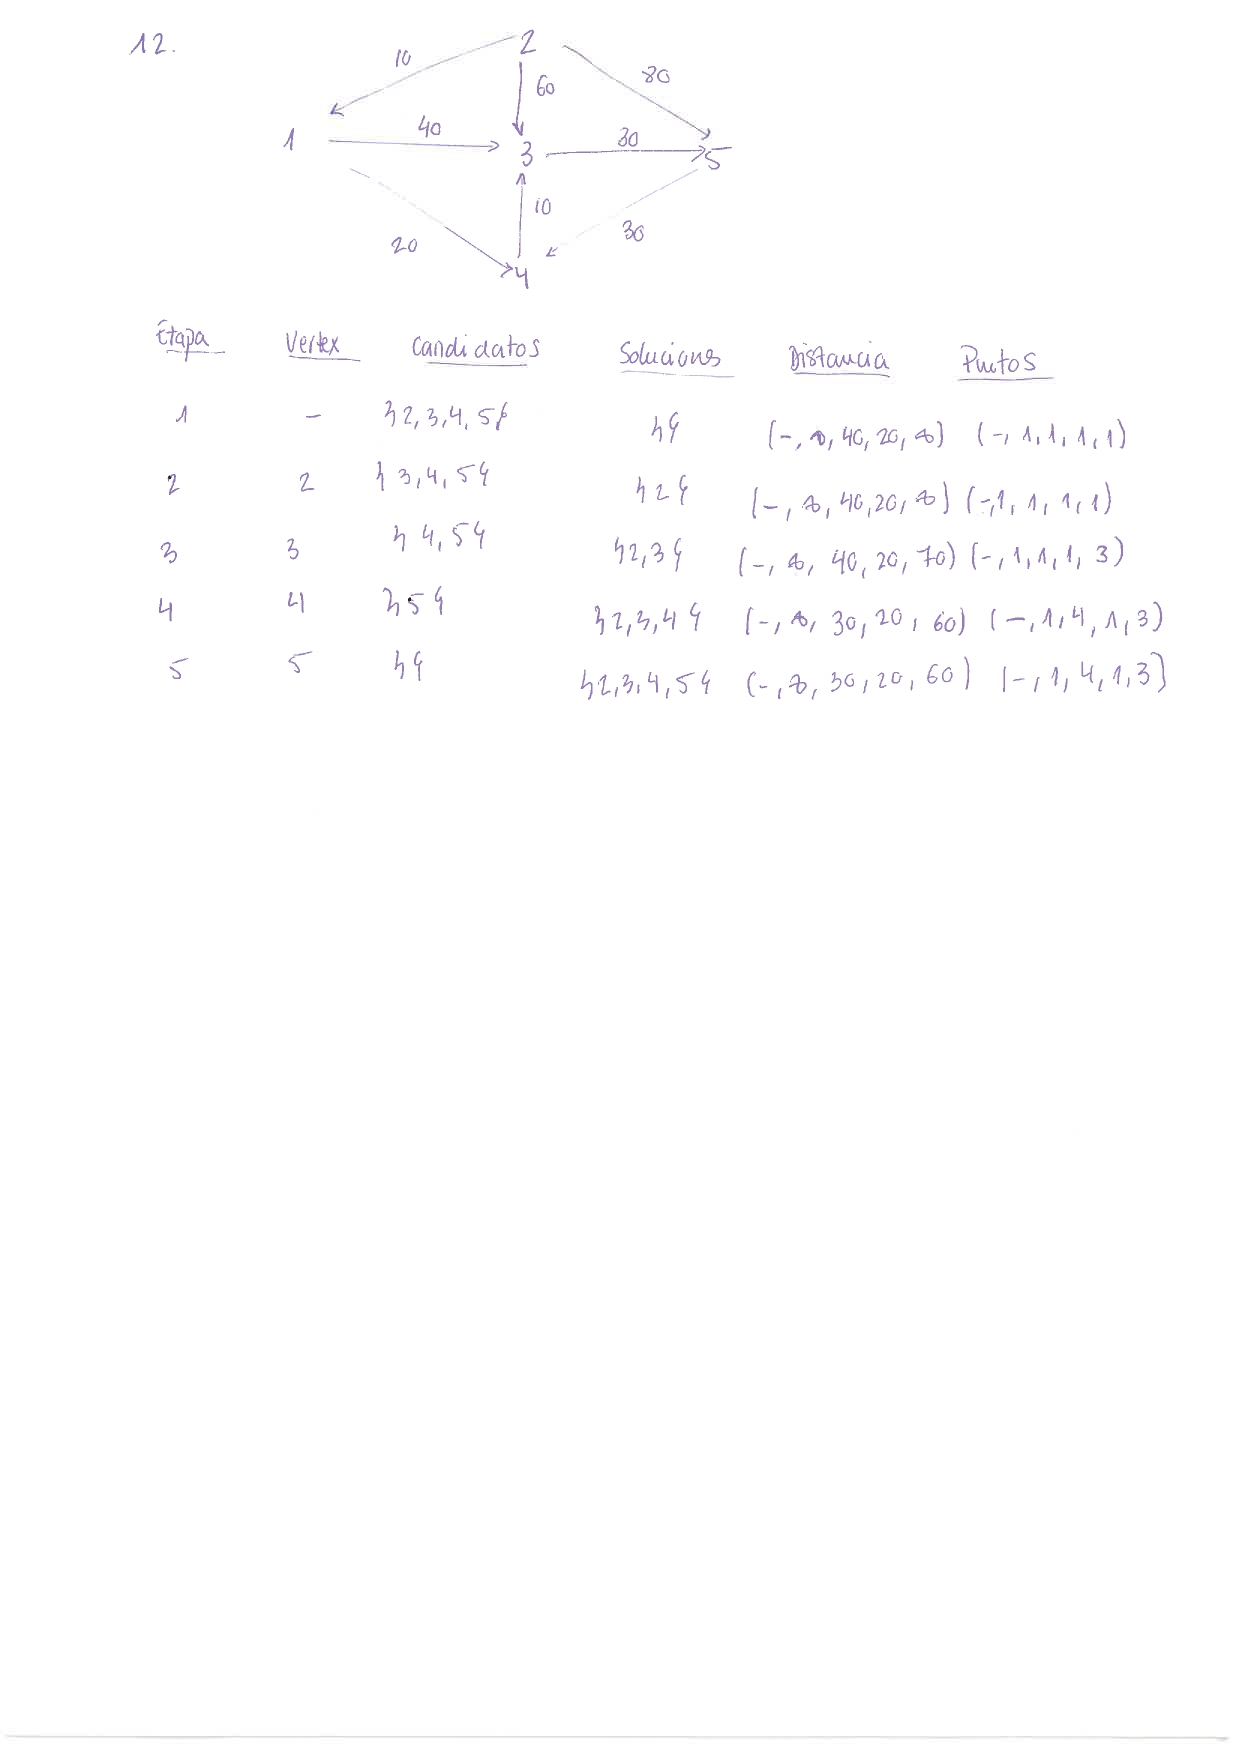 12.
2
10
80
60
1
40
3
30
5
10
20
30
4
Etapa Vertex Candidatos Soluciones Distancia Puntos
1 - {2,3,4,5} {} (-, ∞, 40, 20, ∞) (-, 1, 1, 1, 1)
2 2 {3,4,5} {2} (-, ∞, 40, 20, ∞) (-, 1, 1, 1, 1)
3 3 {4,5} {2,3} (-, ∞, 40, 20, 70) (-, 1, 1, 1, 3)
4 4 {5} {2,3,4} (-, ∞, 30, 20, 60) (-, 1, 4, 1, 3)
5 5 {} {2,3,4,5} (-, ∞, 30, 20, 60) (-, 1, 4, 1, 3)